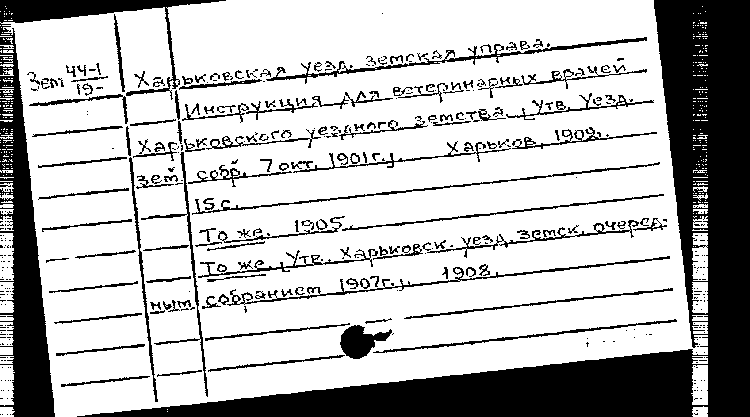 Зем 44-1/19- Харьковская уезд. земская управа.
Инструкция для ветеринарных врачей
Харьковского уездного земства. [Утв. Уезд.
зем. собр. 7 окт. 1901г.]. Харьков, 1902.
15 с.
То же. 1905.
То же. [Утв. Харьковск. уезд. земск. очеред-
ным собранием 1907г.]. 1908.